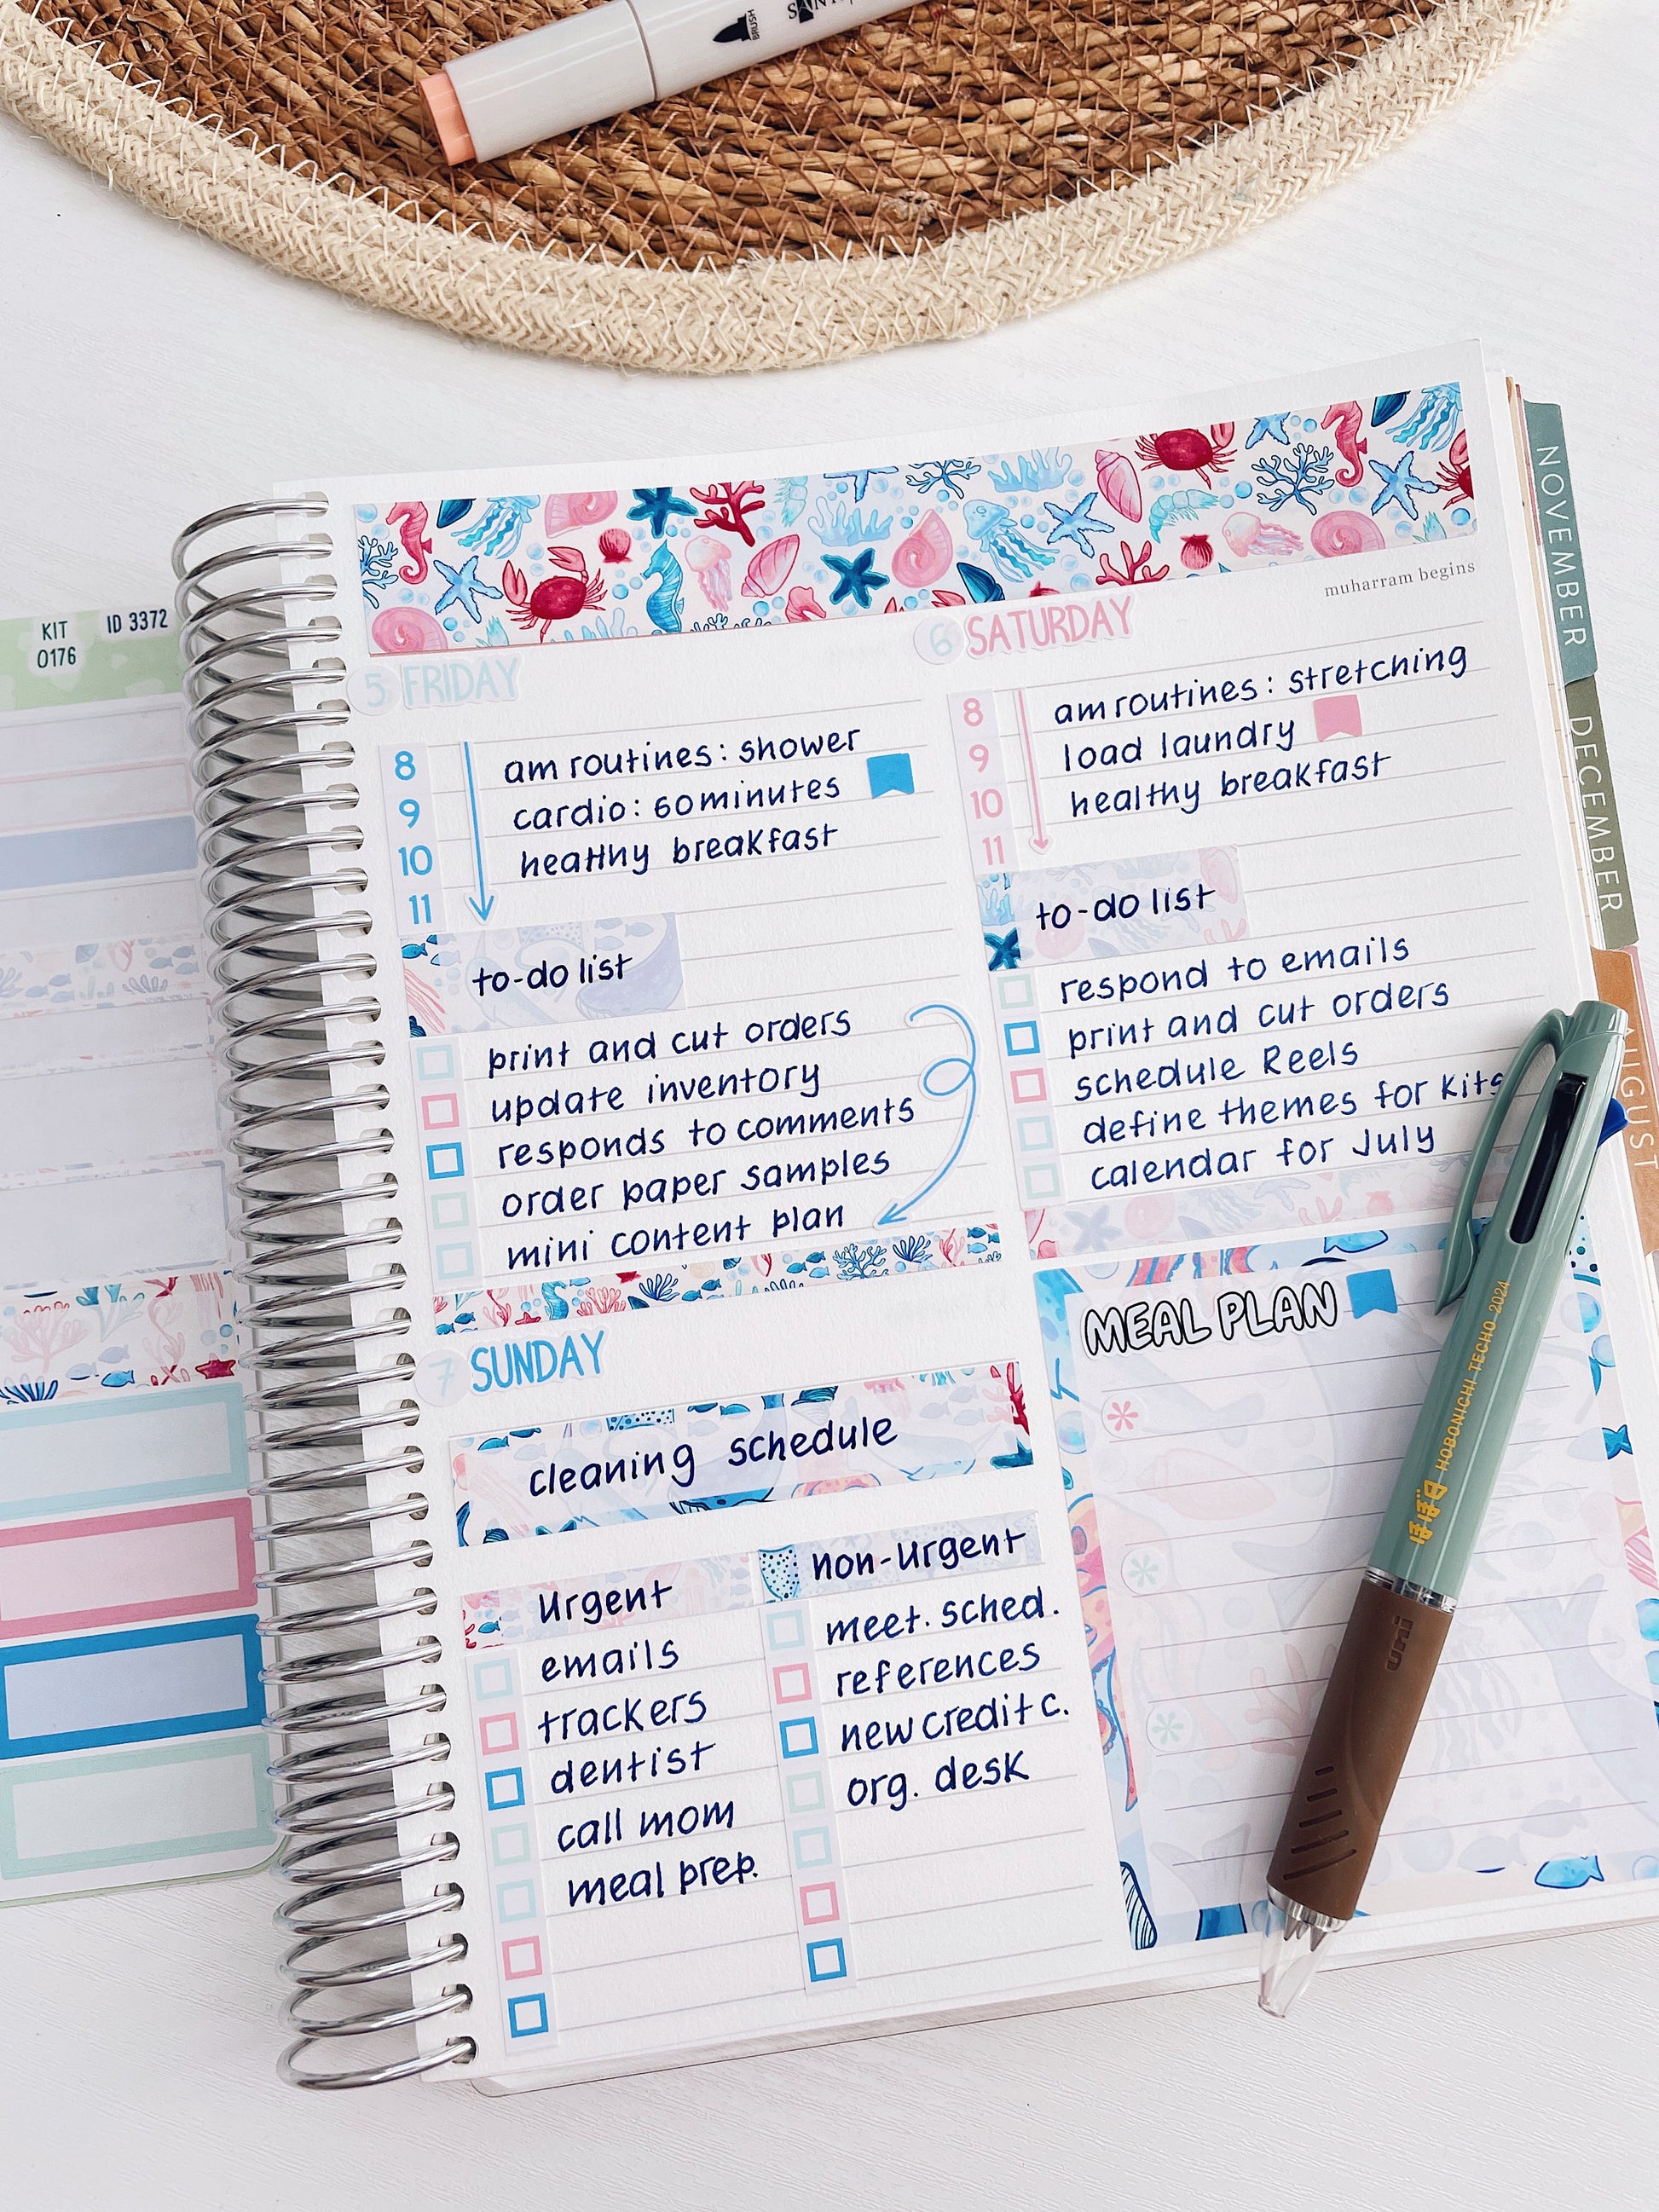 BRUSH
KIT
0176
ID 3372
muharram begins
5 FRIDAY
8
9
10
11
am routines: shower
cardio: 60minutes
healthy breakfast
to-do list
print and cut orders
update inventory
responds to comments
order paper samples
mini content plan
6 SATURDAY
8
9
10
11
am routines: stretching
load laundry
healthy breakfast
to-do list
respond to emails
print and cut orders
schedule Reels
define themes for kits
calendar for July
7 SUNDAY
cleaning schedule
Urgent
emails
trackers
dentist
call mom
meal prep.
non-urgent
meet. sched.
references
new credit c.
org. desk
MEAL PLAN
NOVEMBER
DECEMBER
AUGUST
ほぼ日 HOBONICHI TECHO 2024
uni